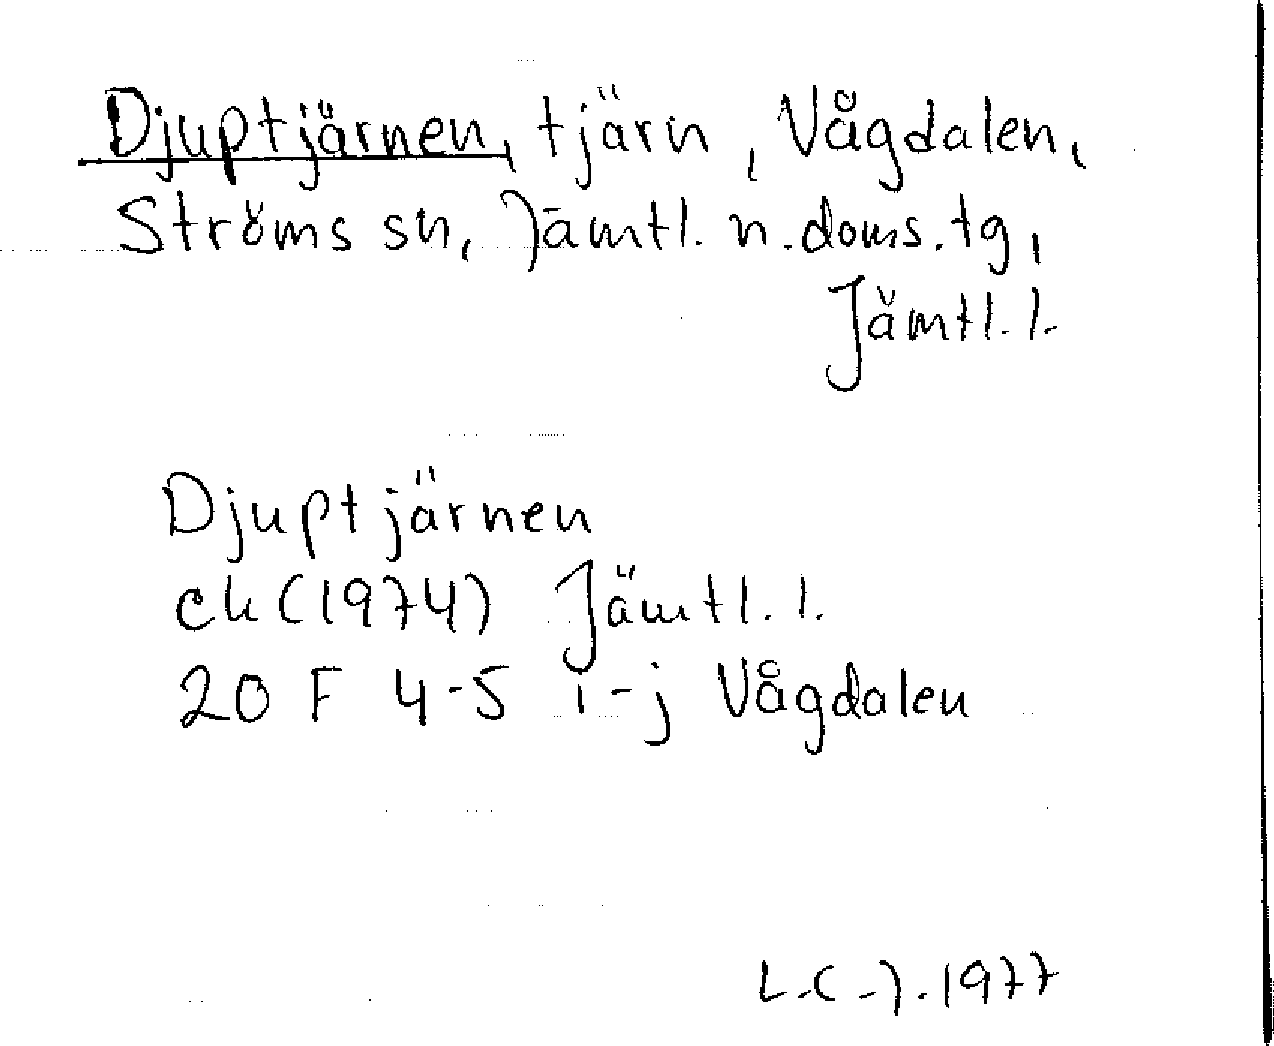 Djuptjärnen, tjärn, Vågdalen,
Ströms sn, Jämtl. n. doms. tg,
Jämtl. l.
Djuptjärnen
ek (1974) Jämtl. l.
20 F 4-5 i-j Vågdalen
L.C-J. 1977